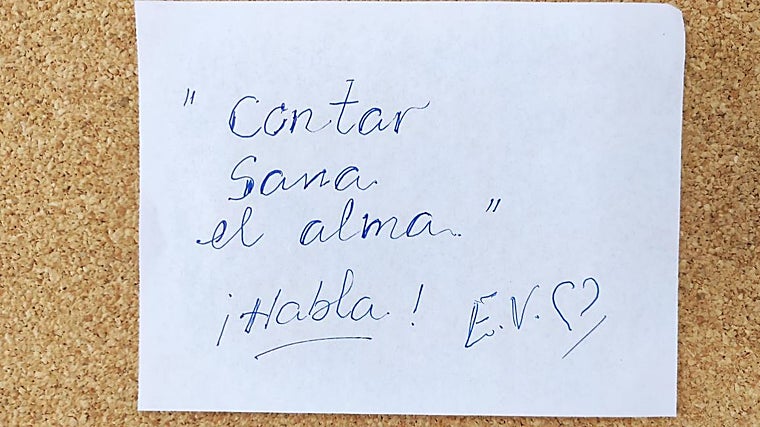 "Contar
Sana
el alma."
¡Habla! E.V.♡